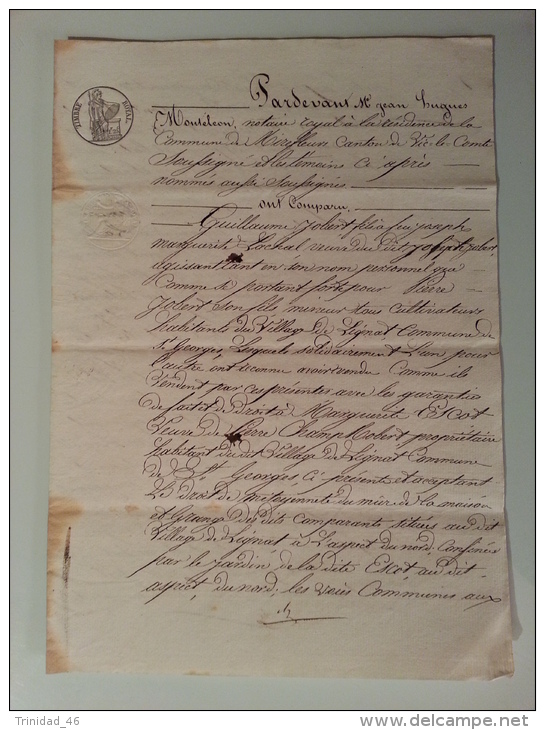 TIMBRE ROYAL
Pardevant Me jean hugues
Monteleon, notaire royal à la résidence de la
Commune de Mirefleurs Canton de Vic-le-Comte
Soussigné et les témoins ci après
nommés aussi Soussignés
ont Comparu,
Guillaume Jobert fils à feu joseph
marguerite veuve du dit joseph jobert,
agissant tant en son nom personnel que
Comme se portant fort pour Pierre
Jobert son fils mineur tous cultivateurs
habitants du Village de Lignat Commune de
St Georges, Lesquels solidairement l'un pour
l'autre ont reconnu avoir vendu Comme ils
Vendent par ces présentes avec les garanties
de fait et de droit à Marguerite Escot
Veuve de Pierre Champ Robert propriétaire
habitant du dit Village de Lignat Commune
de St Georges ci présente et acceptant
Le Droit de metoyenneté du mur de la maison
et Grange des dits comparants situés au dit
Village de Lignat à L'aspect du nord, Confiné
par le jardin de la dite Escot, au dit
aspect du nord; les voies Communes aux
Trinidad_46
www.delcampe.net